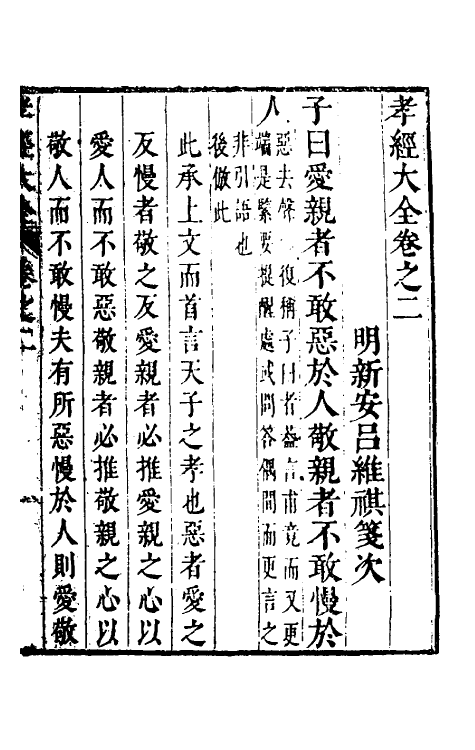 孝經大全卷之二
明新安呂維祺箋次
子曰愛親者不敢惡於人敬親者不敢慢於
人
惡去聲○復稱子曰者蓋言甫竟而又更
端是緊要提醒處或問答偶間而更言之
非引語也
後倣此
此承上文而首言天子之孝也惡者愛之
反慢者敬之反愛親者必推愛親之心以
愛人而不敢惡敬親者必推敬親之心以
敬人而不敢慢夫有所惡慢於人則愛敬
孝經大全 卷之二